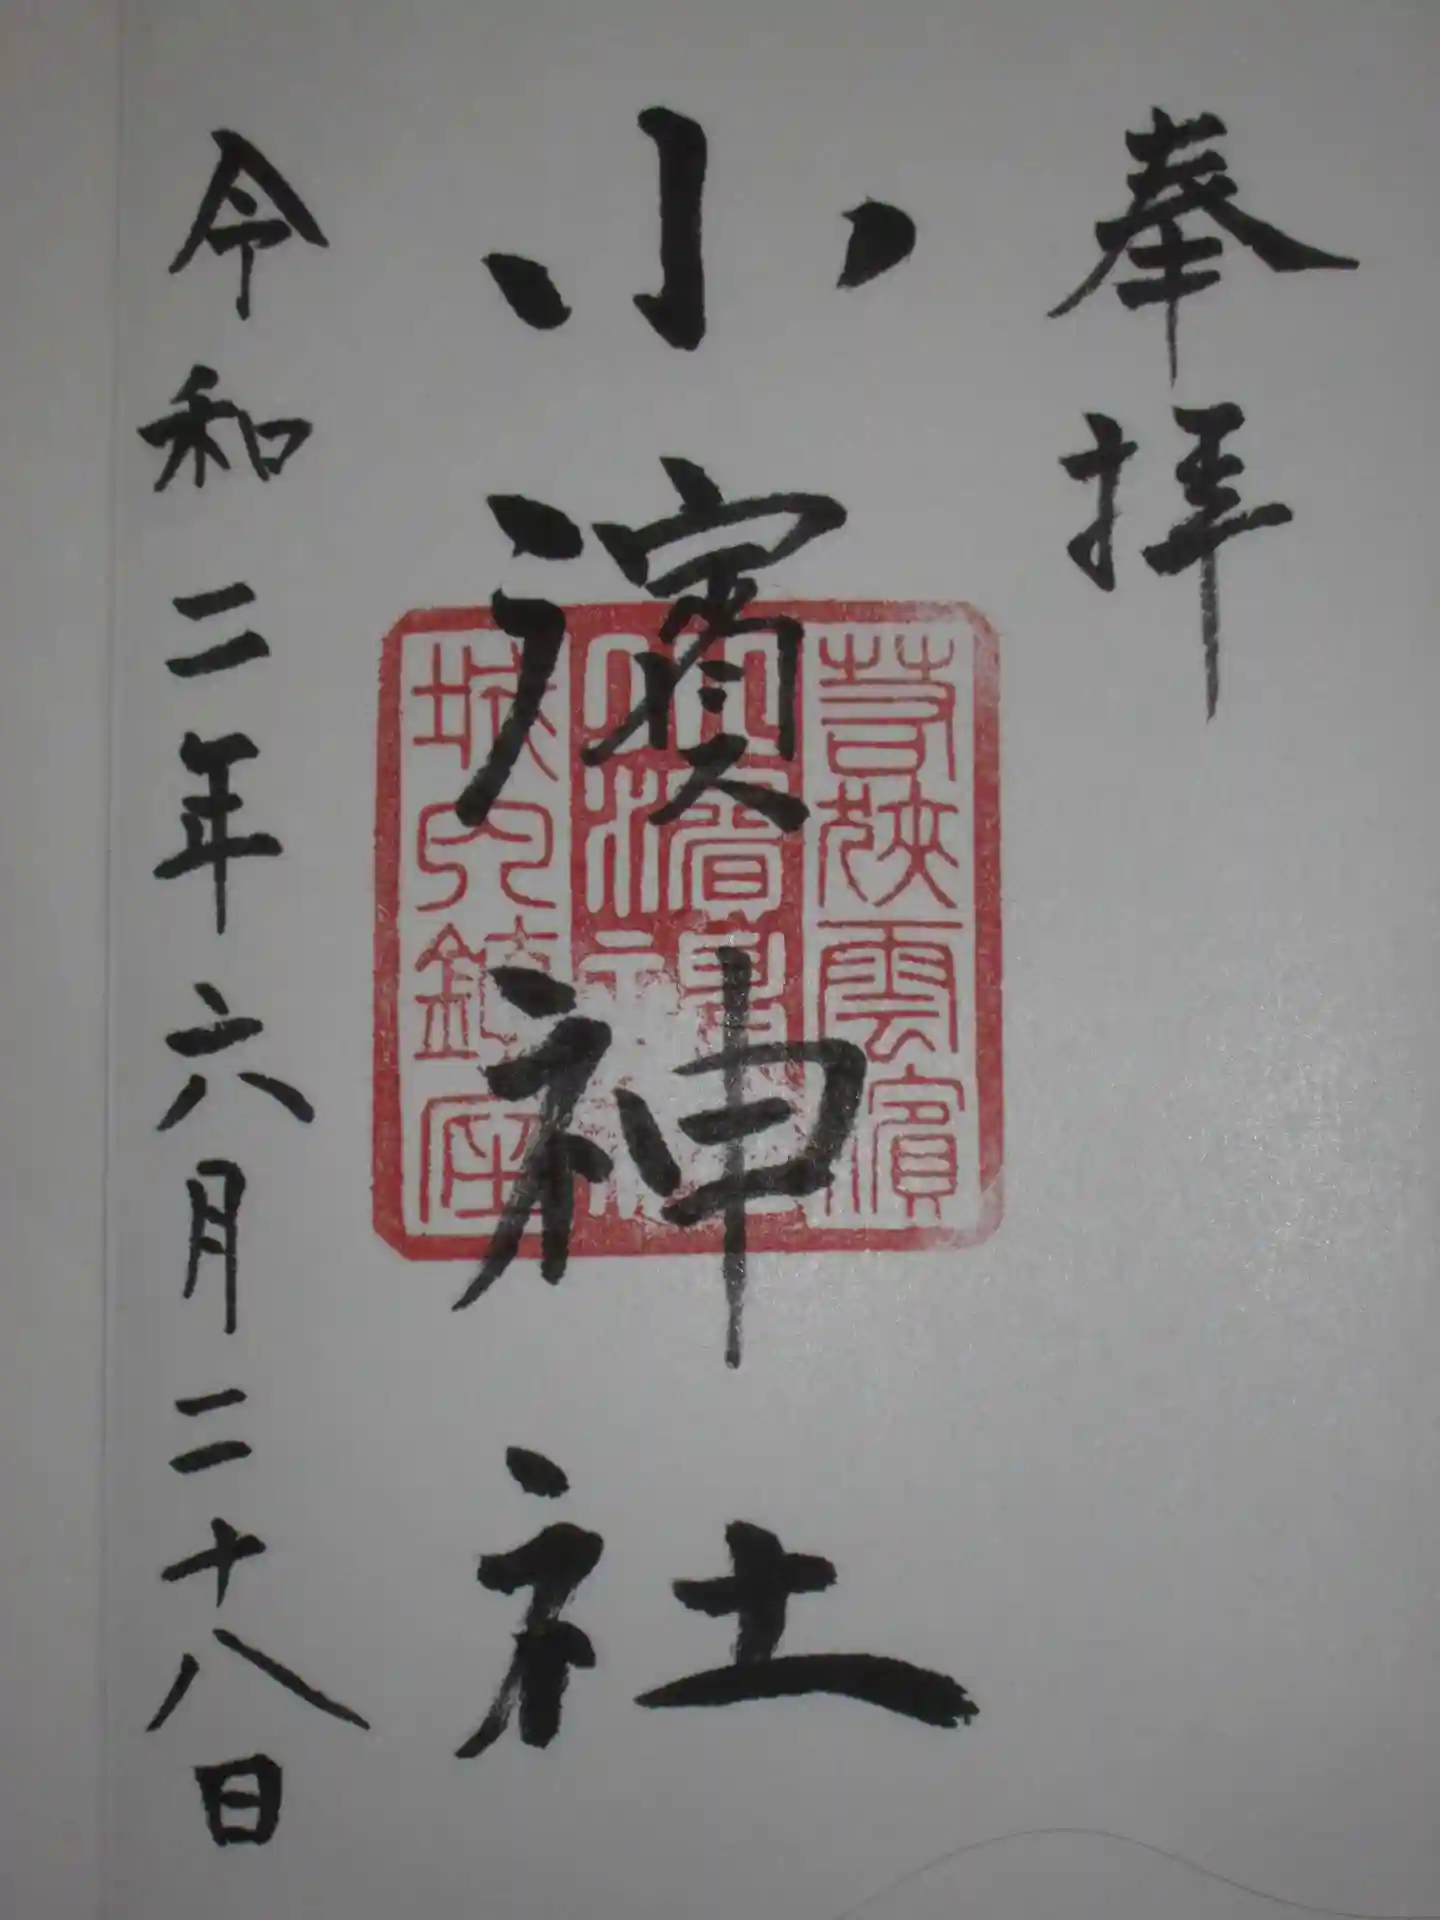 奉拝
小濱神社
若狭雲濱
小濱神社
城内鎮座
令和二年六月二十八日